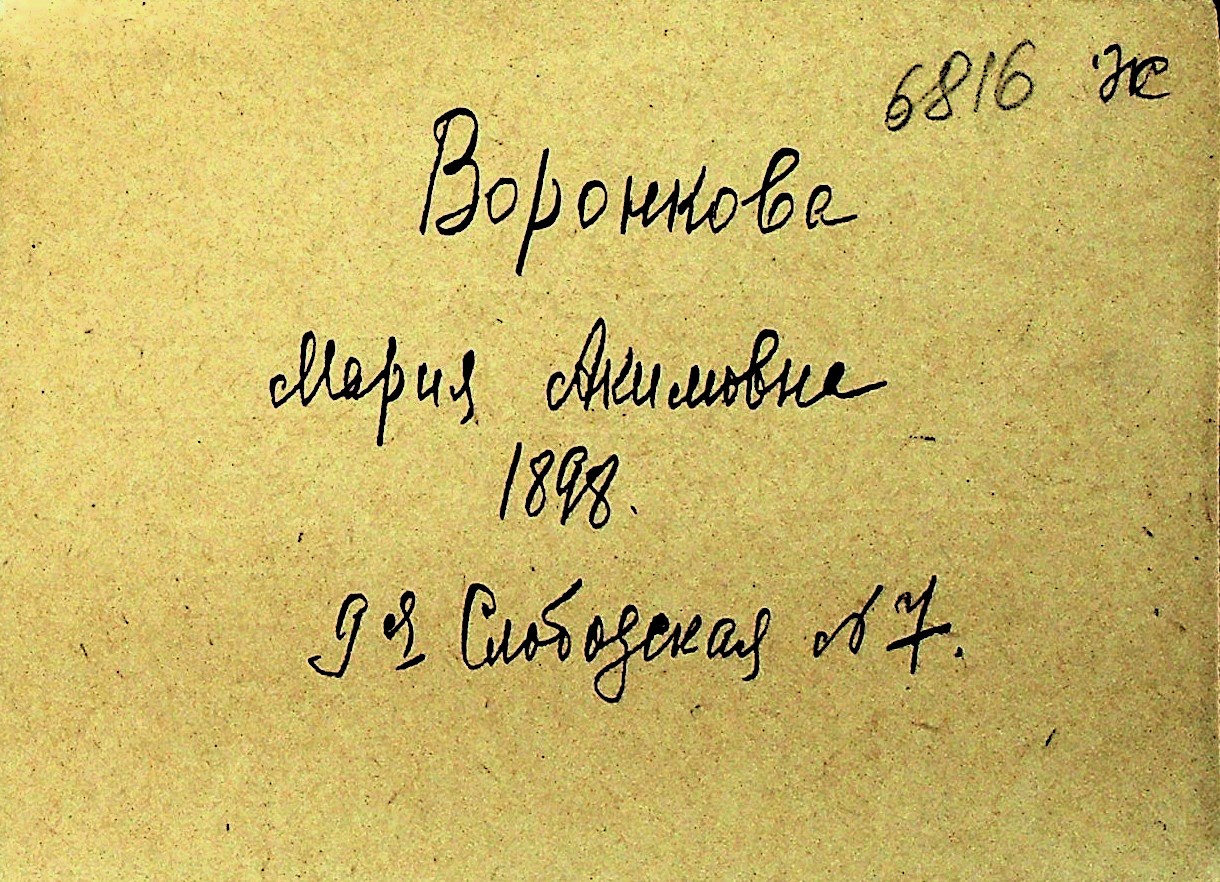 6816 Ж
Воронкова
Мария Акимовна
1898.
9я Слободская N 7.